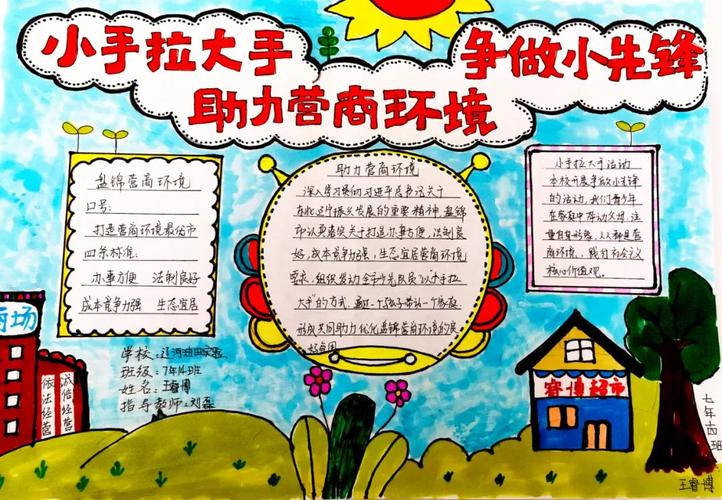 小手拉大手
争做小先锋
助力营商环境
盘锦营商环境
口号:
打造营商环境最优市
四条标准:
办事方便 法制良好
成本竞争力强 生态宜居
助力营商环境
深入学习贯彻习近平总书记关于
东北全面振兴发展的重要精神,盘锦
市认真落实关于打造办事方便,法制良
好,成本竞争力强,生态宜居营商环境
要求,组织发动全市少先队员以"小手拉
大手"的方式,通过一个孩子带动一个家庭
形成共同助力优化盘锦营商环境的良
好氛围
小手拉大手活动
本校开展争做小先锋
的活动,我们青少年
在家庭中带动父母,注
重自身形象,人人都是营
商环境,践行社会主义
核心价值观。
商场
依法经营
诚信经营
学校:辽河油田实验
班级:7年14班
姓名:王睿博
指导教师:刘磊
睿博超市
七年四班
王睿博